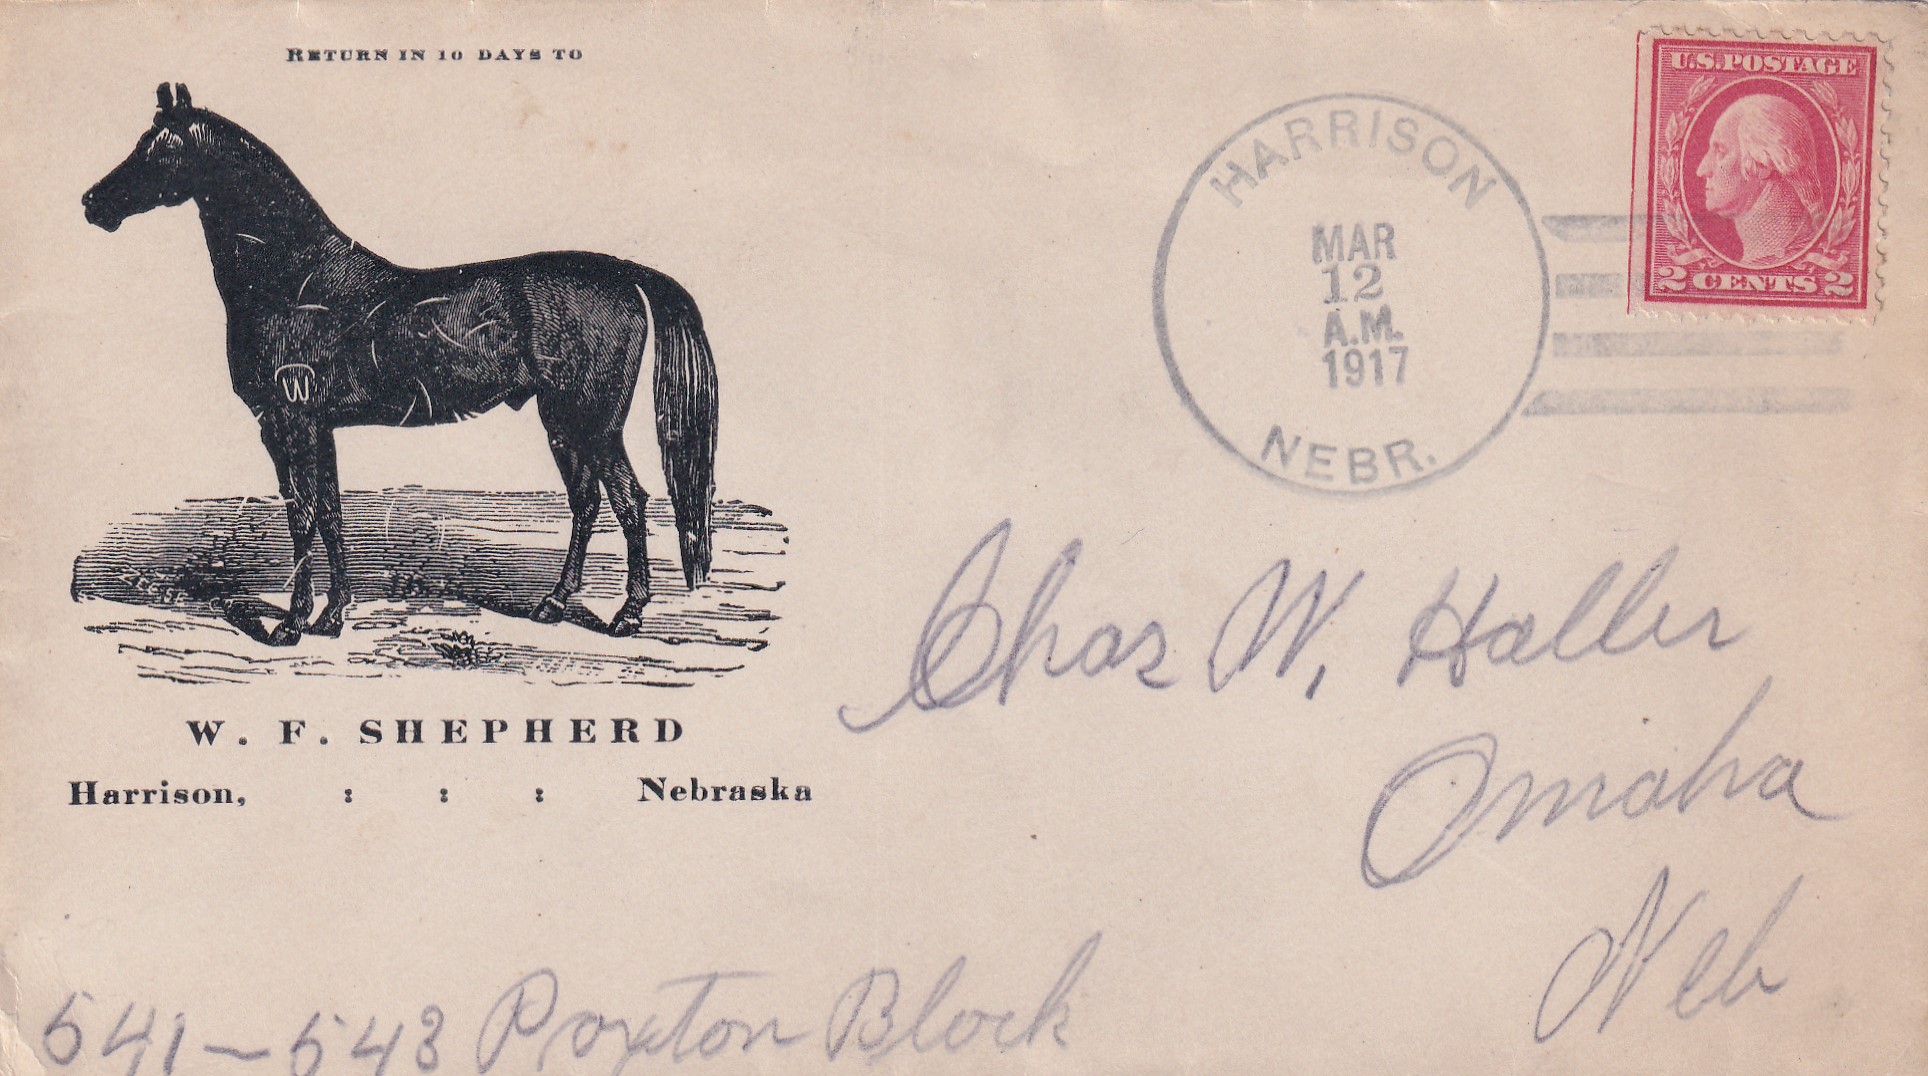 RETURN IN 10 DAYS TO
W
W. F. SHEPHERD
Harrison, : : : Nebraska
HARRISON
MAR
12
A.M.
1917
NEBR.
U.S. POSTAGE
2 CENTS 2
Chas W. Haller
Omaha
Neb
541-543 Paxton Block